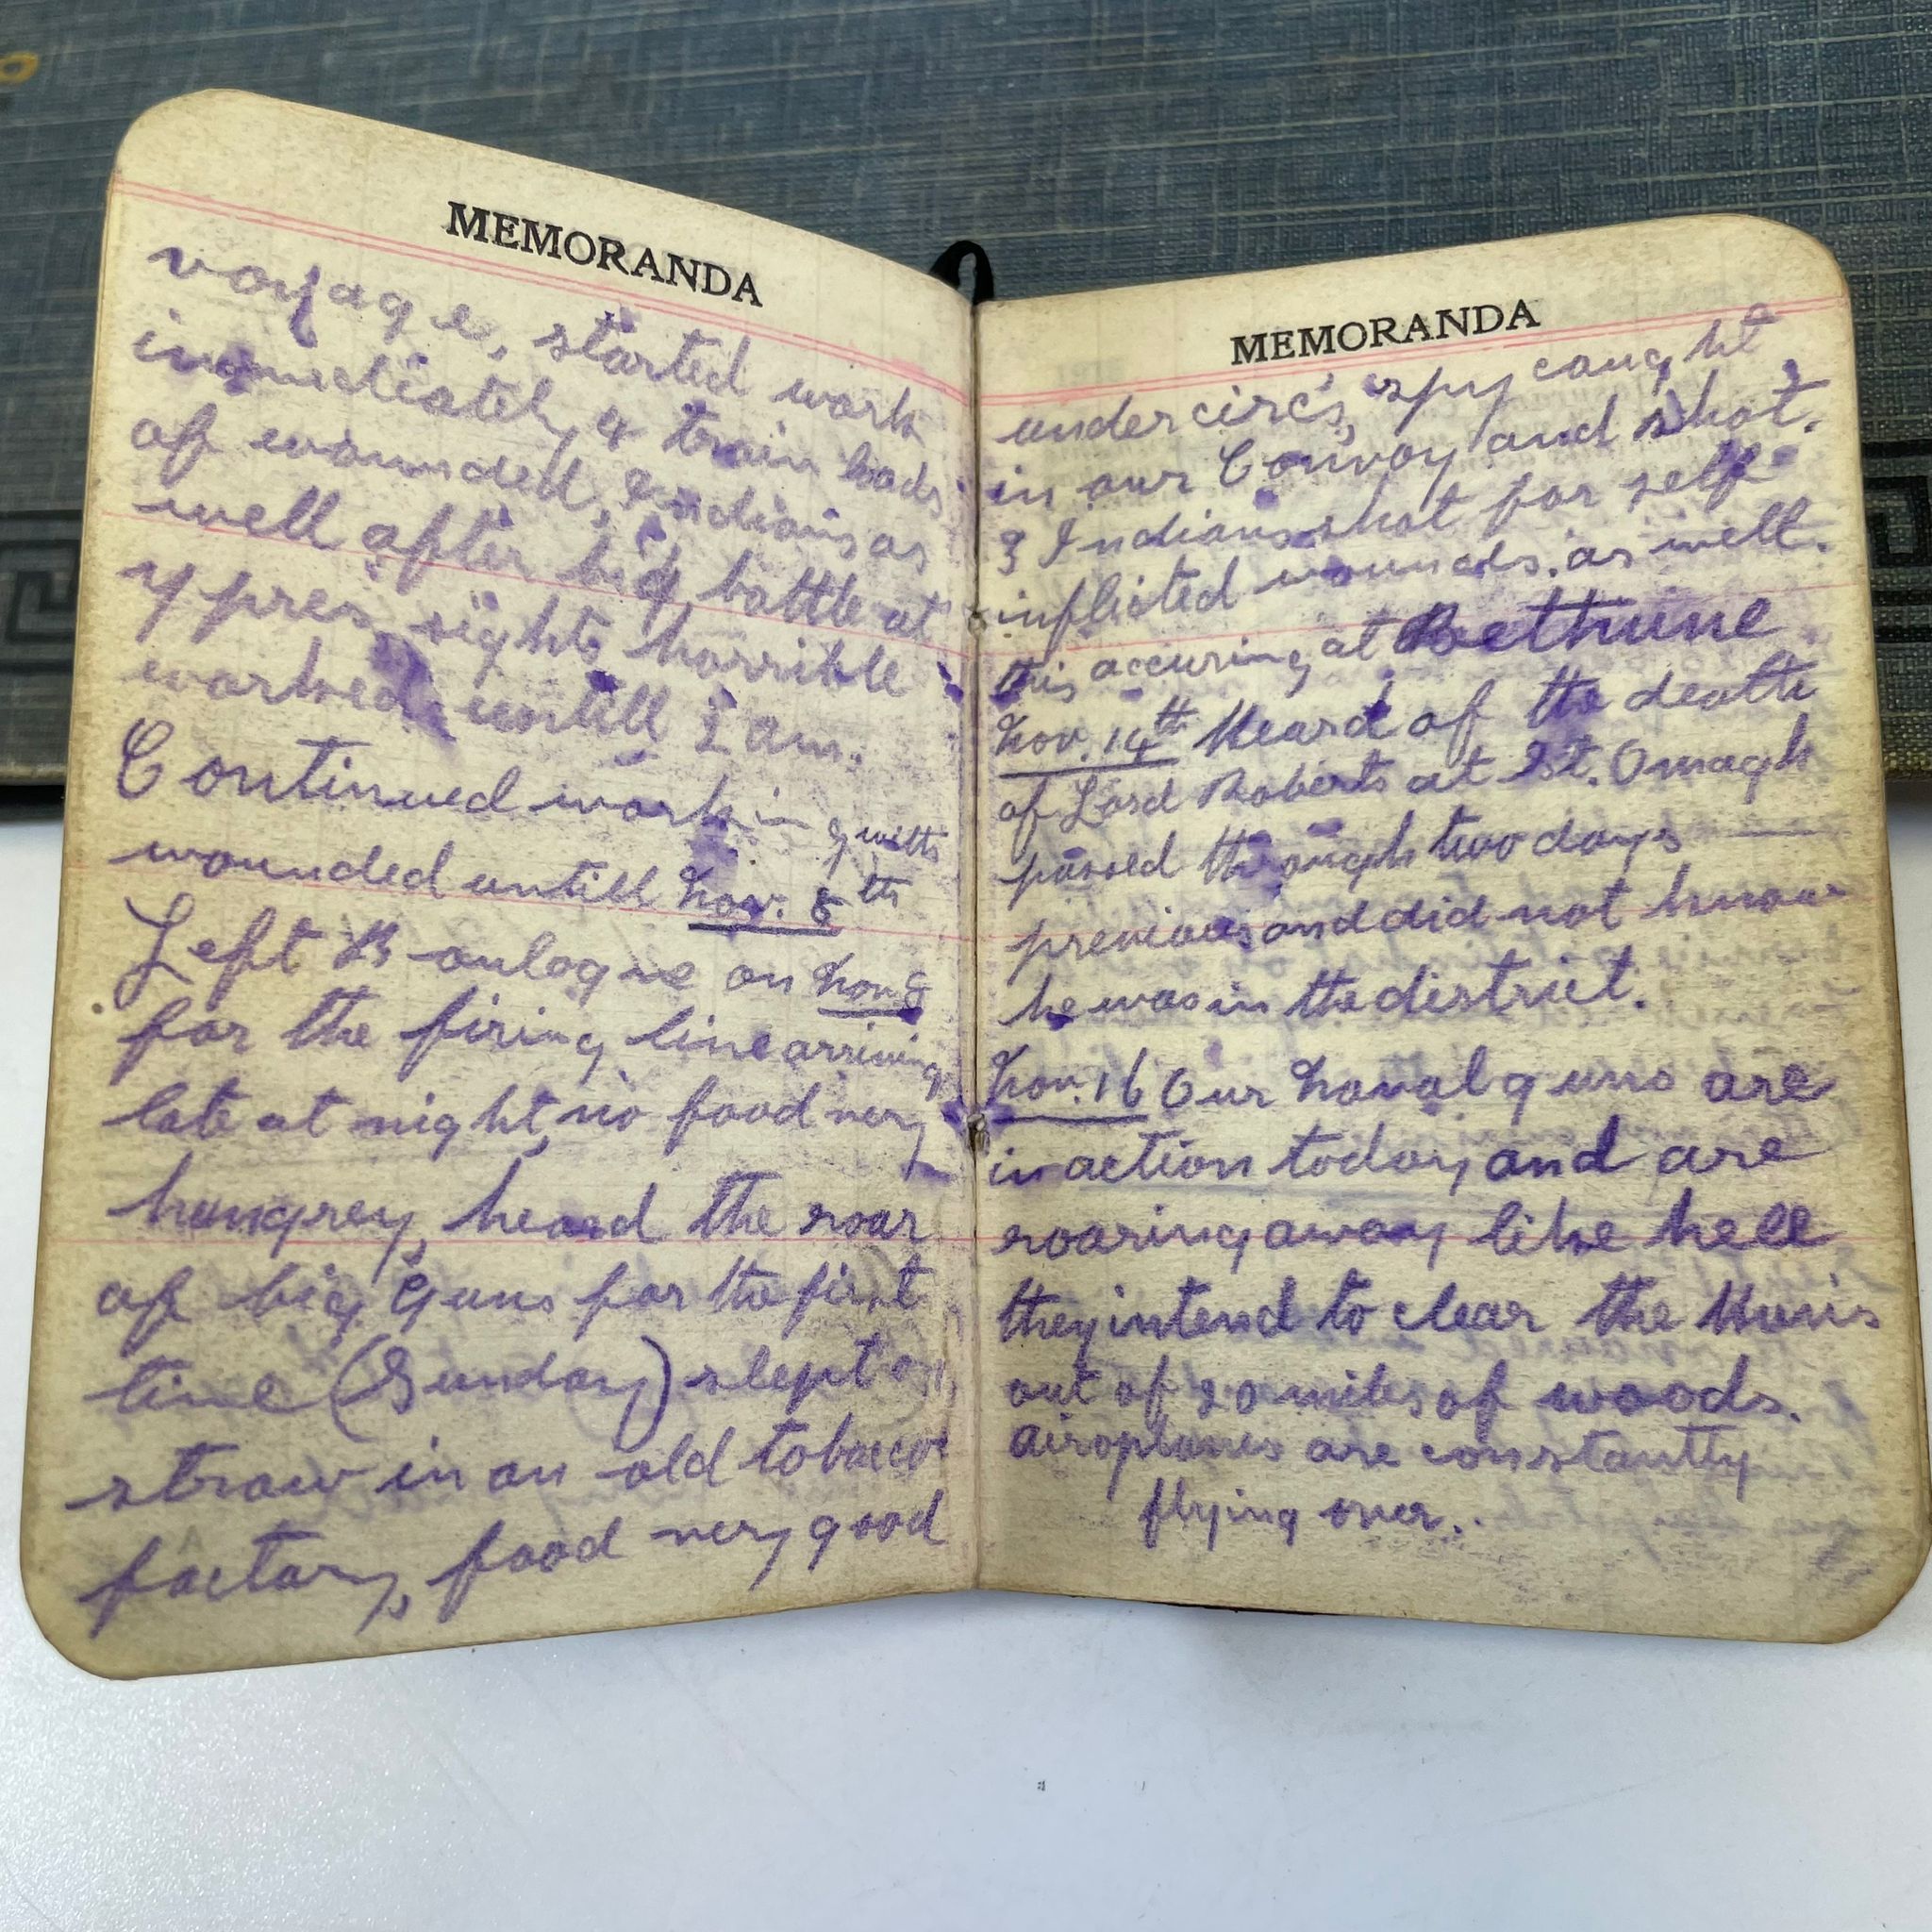 MEMORANDA
voyage, started work
immediately, 4 train loads
of wounded, Indians as
well after big battle at
Ypres, sights horrible
worked untill 2 am.
Continued working with
wounded untill Nov. 8th
Left Boulogne on Nov 8
for the firing line arriving
late at night, no food very
hungrey, heard the roar
of big Guns for the first
time (Sunday) slept on
straw in an old tobacco
factory, food very good
MEMORANDA
under circ's, spy caught
in our Convoy and shot.
3 Indians shot for self
inflicted wounds. as well.
this accuring at Bethune
Nov. 14th Heard of the death
of Lord Roberts at St. Omagh
passed through two days
previous and did not know
he was in the district.
Nov. 16 Our Naval guns are
in action today and are
roaring away like hell
they intend to clear the Huns
out of 20 miles of woods.
airoplanes are constantly
flying over..